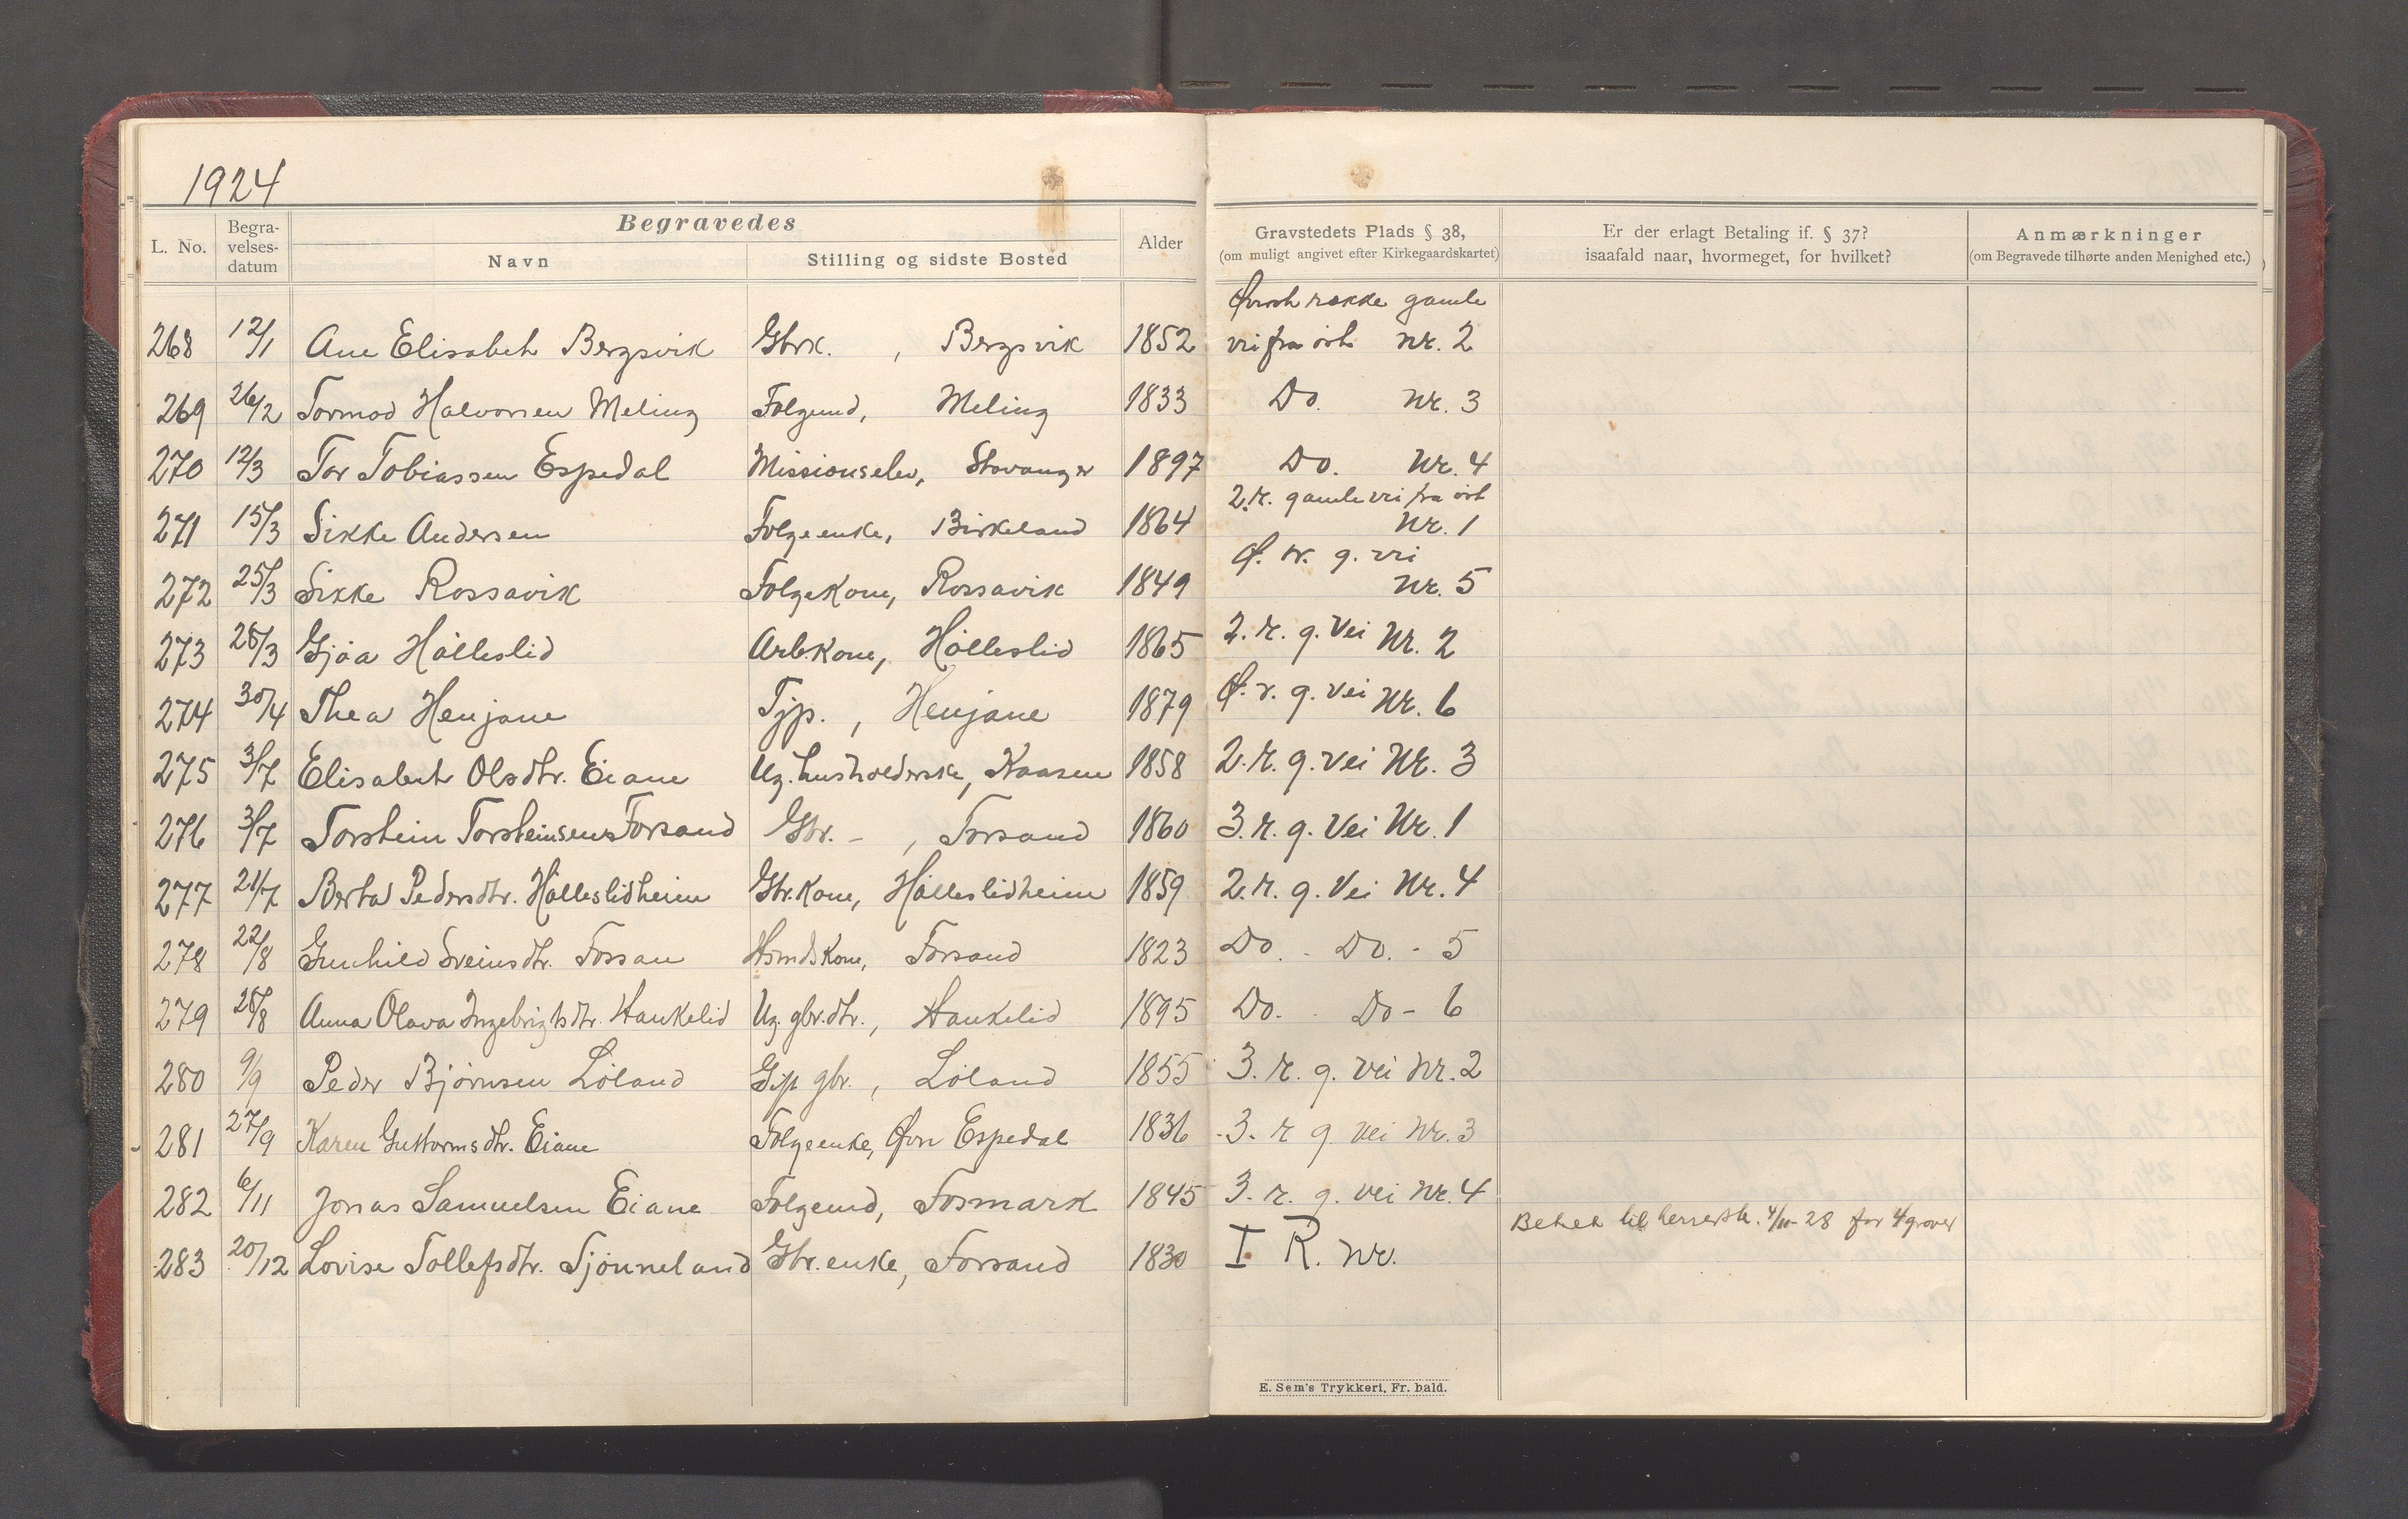 1924
L. No. Begravelsesdatum Begravedes Navn Stilling og sidste Bosted Alder Gravstedets Plads § 38, (om muligt angivet efter Kirkegaardskartet) Er der erlagt Betaling if. § 37? isaafald naar, hvormeget, for hvilket? Anmærkninger (om Begravede tilhørte anden Menighed etc.)
Øverste række gamle
268 12/1 Ane Elisabeth Bergsvik Gbrk. , Bergsvik 1852 vei fra øst Nr. 2
269 26/2 Tormod Halvorsen Meling Folgemd, Meling 1833 Do. Nr. 3
270 12/3 Tor Tobiassen Espedal Missionselev, Stavanger 1897 Do. Nr. 4
2. r. gamle vei fra øst
271 15/3 Sikke Andersen Folgeenke, Birkeland 1864 Nr. 1
Ø. r. g. vei
272 25/3 Sikke Rossavik Folgekone, Rossavik 1849 Nr. 5
273 28/3 Gjøa Hølleslid Arb.kone, Hølleslid 1865 2. r. g. Vei Nr. 2
274 30/4 Thea Heujane Tjp. , Heujane 1879 Ø. r. g. vei Nr. 6
275 3/7 Elisabeth Olsdtr. Eiane Ug. husholderske, Kaasen 1858 2. r. g. vei Nr. 3
276 3/7 Torstein Torsteinsen Forsand Gbr. - , Forsand 1860 3. r. g. Vei Nr. 1
277 21/7 Berta Pedersdtr. Hølleslidheim Gbr.kone, Hølleslidheim 1859 2. r. g. Vei Nr. 4
278 22/8 Gunhild Sveinsdtr. Fossan Hsmdskone, Forsand 1823 Do. - Do. - 5
279 28/8 Anna Olava Ingebrigtsdtr. Haukelid Ug. gbr.dtr., Haukelid 1895 Do. - Do - 6
280 9/9 Peder Bjørnsen Løland Gip gbr. , Løland 1855 3. r. g. vei Nr. 2
281 27/9 Karen Guttormsdtr. Eiane Folgeenke, Øvre Espedal 1836 3. r g. vei Nr. 3
282 6/11 Jonas Samuelsen Eiane Folgemd, Fosmark 1845 3. r. g. vei Nr. 4
283 20/12 Lovise Tollefsdtr. Tjønneland Gbr.enke, Forsand 1830 I R. Nr. til 28 for 4 graver
E. Sem's Trykkeri, Fr. hald.